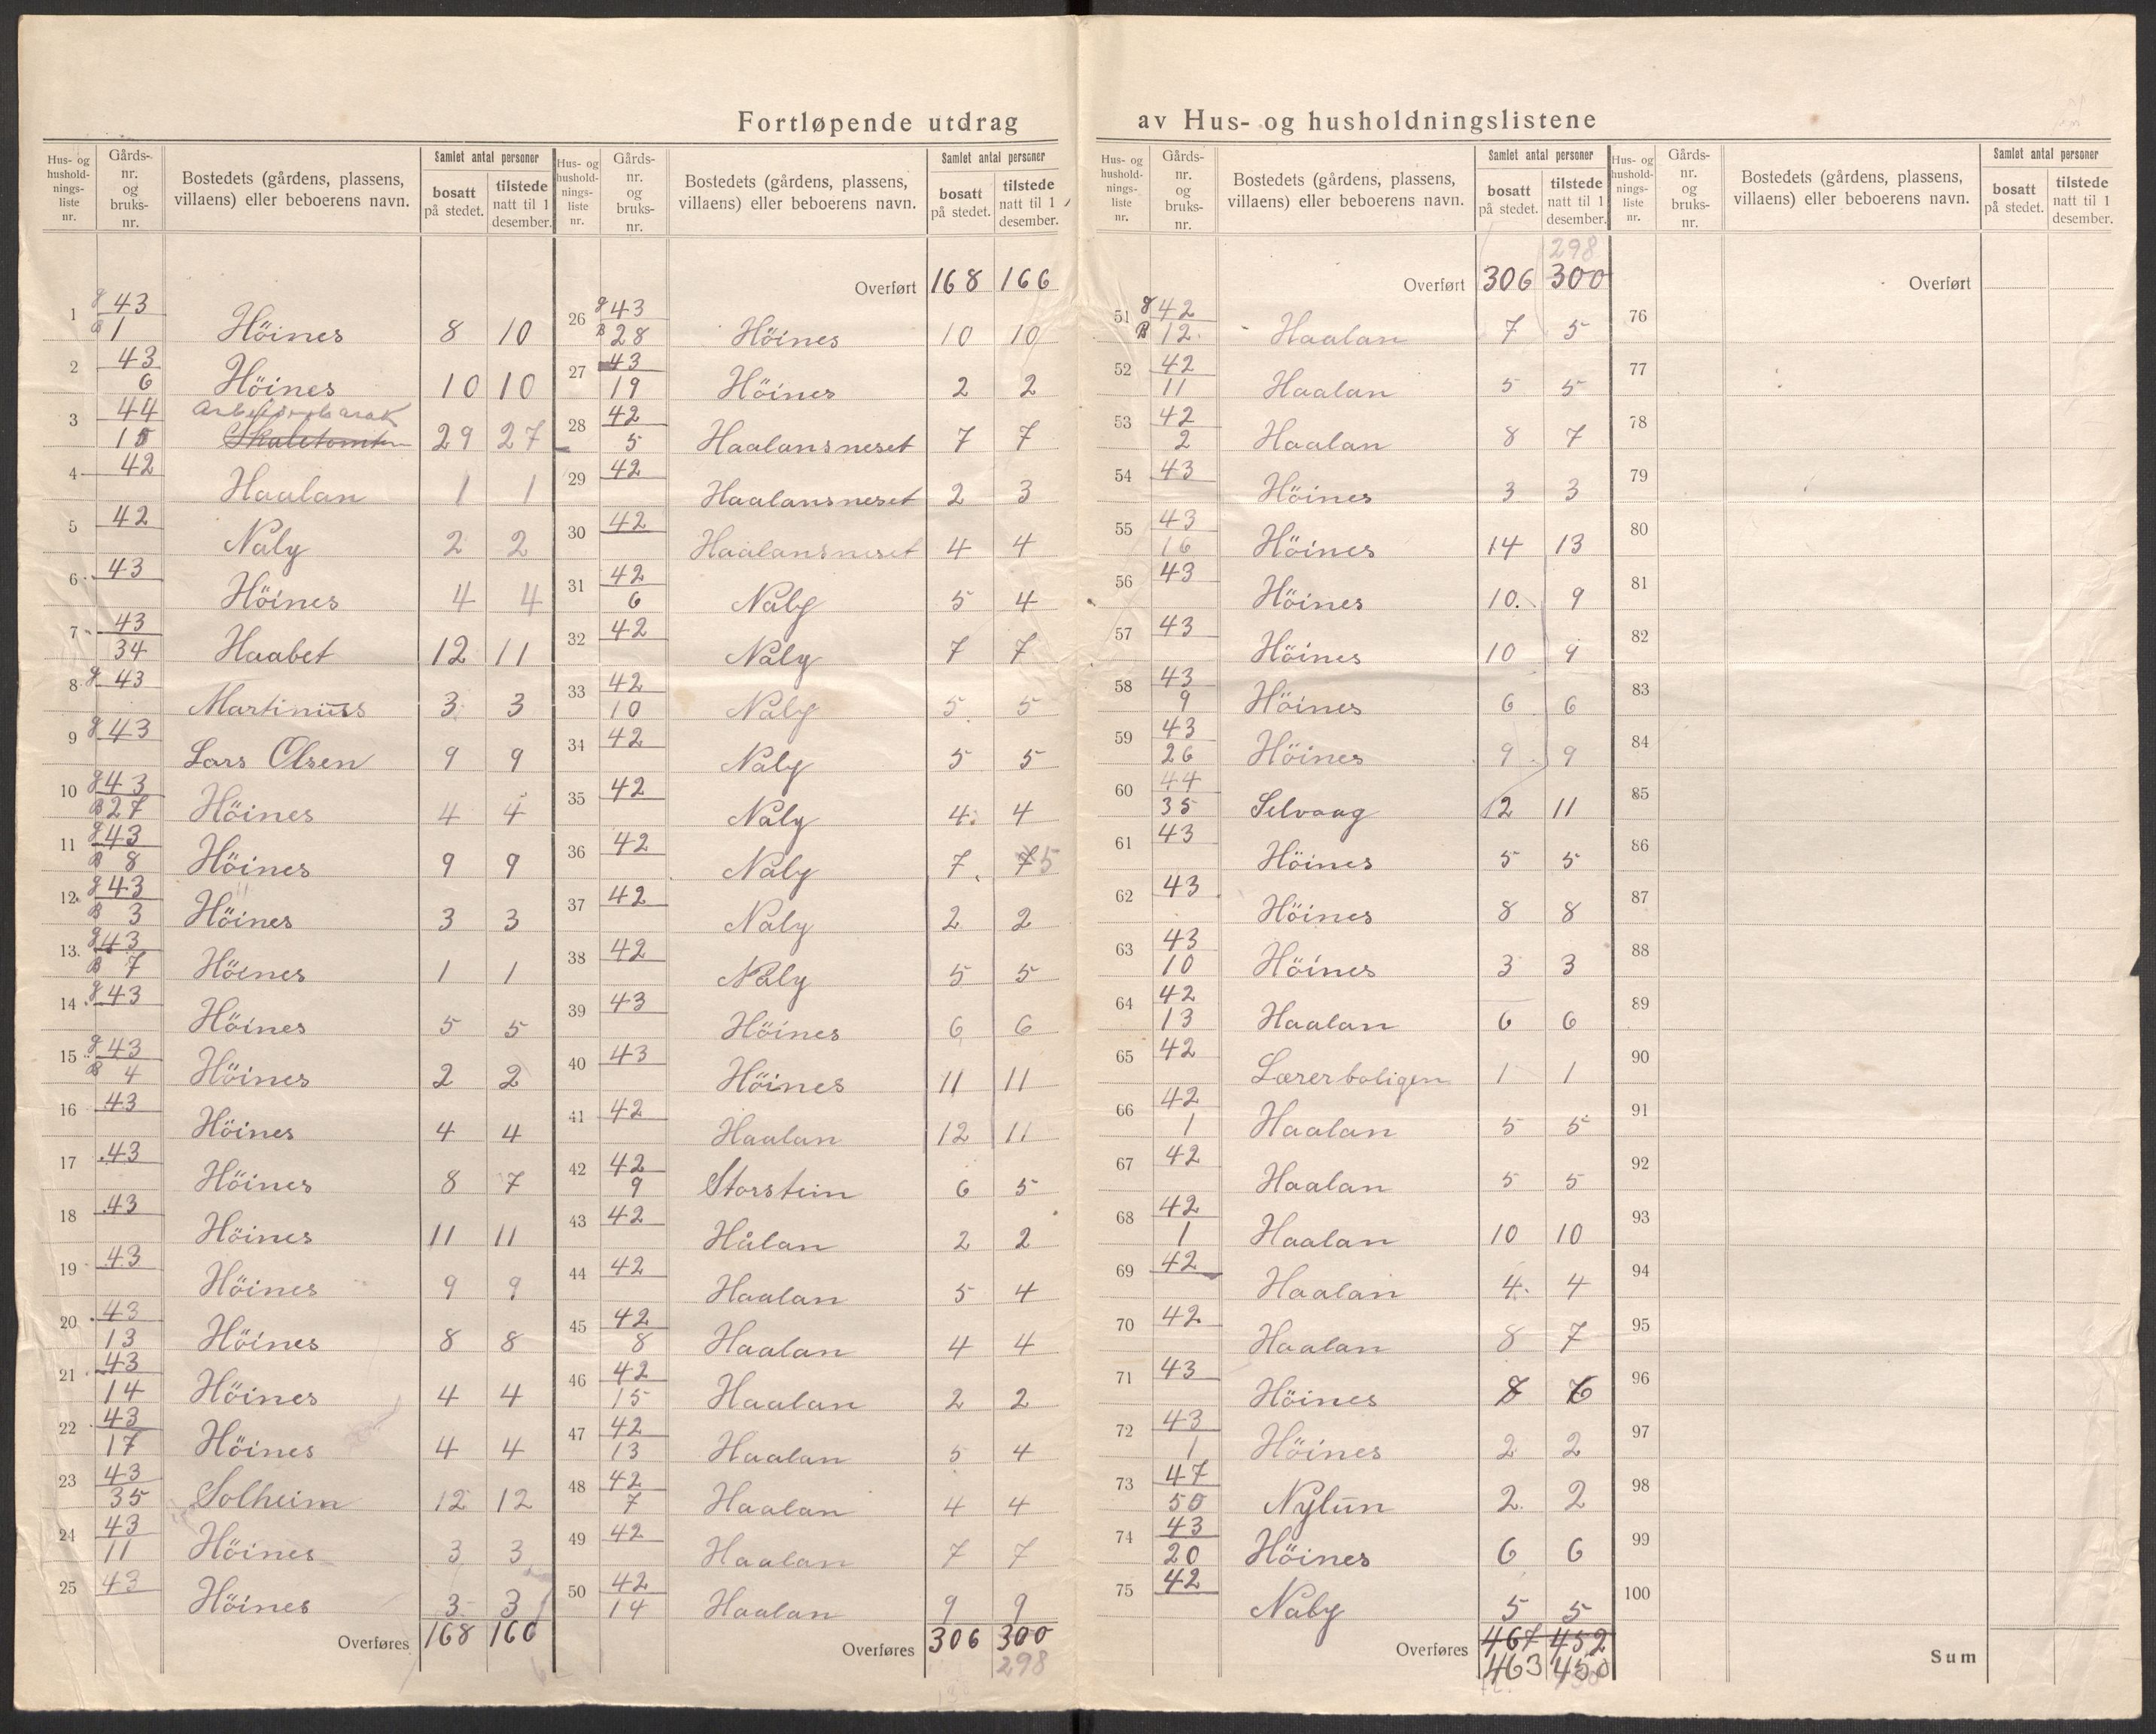 Fortløpende utdrag av Hus- og husholdningslistene
Hus- og husholdnings-liste nr. | Gårds-nr. og bruks-nr. | Bostedets (gårdens, plassens, villaens) eller beboerens navn. | Samlet antal personer bosatt på stedet. | tilstede natt til 1 desember.
1 g 43 B 1 Höines 8 10
2 43 6 Höines 10 10
3 44 15 Arbeiderbarak Skaletomten 29 27
4 42 Haalan 1 1
5 42 Naly 2 2
6 43 Höines 4 4
7 43 34 Haabet 12 11
8 g 43 Martinuss 3 3
9 g 43 Lars Olsen 9 9
10 g 43 B 27 Höines 4 4
11 g 43 B 8 Höines 9 9
12 g 43 B 3 Höines 3 3
13 g 43 B 7 Höines 1 1
14 g 43 Höines 5 5
15 g 43 B 4 Höines 2 2
16 43 Höines 4 4
17 43 Höines 8 7
18 43 Höines 11 11
19 43 Höines 9 9
20 43 13 Höines 8 8
21 43 14 Höines 4 4
22 43 17 Höines 4 4
23 43 35 Solheim 12 12
24 43 11 Höines 3 3
25 43 Höines 3 3
Overføres 168 166
Hus- og husholdnings-liste nr. | Gårds-nr. og bruks-nr. | Bostedets (gårdens, plassens, villaens) eller beboerens navn. | Samlet antal personer bosatt på stedet. | tilstede natt til 1 desember.
Overført 168 166
26 g 43 B 28 Höines 10 10
27 43 19 Höines 2 2
28 42 5 Haalansneset 7 7
29 42 Haalansneset 2 3
30 42 Haalansneset 4 4
31 42 6 Naly 5 4
32 42 Naly 7 7
33 42 10 Naly 5 5
34 42 Naly 5 5
35 42 Naly 4 4
36 42 Naly 7 7 5
37 42 Naly 2 2
38 42 Naly 5 5
39 43 Höines 6 6
40 43 Höines 11 11
41 42 Haalan 12 11
42 42 9 Storstein 6 5
43 42 Hålan 2 2
44 42 Haalan 5 4
45 42 8 Haalan 4 4
46 42 15 Haalan 2 2
47 42 13 Haalan 5 4
48 42 7 Haalan 4 4
49 42 Haalan 7 7
50 42 14 Haalan 9 9
Overføres 306 300
298
Hus- og husholdnings-liste nr. | Gårds-nr. og bruks-nr. | Bostedets (gårdens, plassens, villaens) eller beboerens navn. | Samlet antal personer bosatt på stedet. | tilstede natt til 1 desember.
298
Overført 306 300
51 g 42 B 12 Haalan 7 5
52 42 11 Haalan 5 5
53 42 2 Haalan 8 7
54 43 Höines 3 3
55 43 16 Höines 14 13
56 43 Höines 10 9
57 43 Höines 10 9
58 43 9 Höines 6 6
59 43 26 Höines 9 9
60 44 35 Selvaag 12 11
61 43 Höines 5 5
62 43 Höines 8 8
63 43 10 Höines 3 3
64 42 13 Haalan 6 6
65 42 Lærerboligen 1 1
66 42 1 Haalan 5 5
67 42 Haalan 5 5
68 42 1 Haalan 10 10
69 42 Haalan 4 4
70 42 Haalan 8 7
71 43 Höines 8 6
72 43 1 Höines 2 2
73 47 50 Nylun 2 2
74 43 20 Höines 6 6
75 42 Naly 5 5
Overføres 467 452
463 450
Hus- og husholdnings-liste nr. | Gårds-nr. og bruks-nr. | Bostedets (gårdens, plassens, villaens) eller beboerens navn. | Samlet antal personer bosatt på stedet. | tilstede natt til 1 desember.
Overført
76
77
78
79
80
81
82
83
84
85
86
87
88
89
90
91
92
93
94
95
96
97
98
99
100
Sum